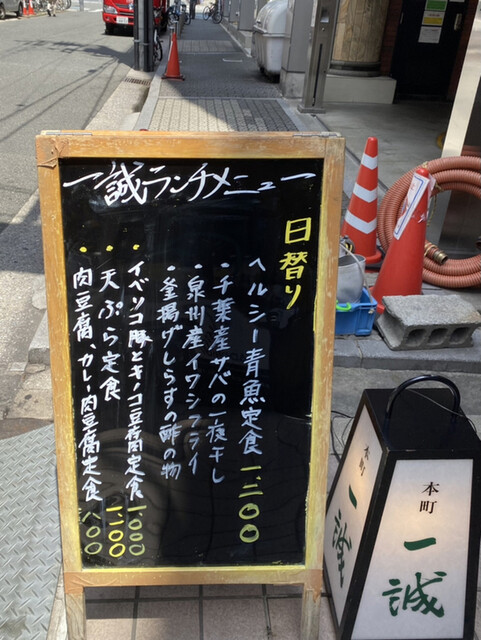 一誠ランチメニュー
日替り
ヘルシー青魚定食 1,300
・千葉産サバの一夜干し
・泉州産イワシフライ
・釜揚げしらすの酢の物
・イベリコ豚とキノコ豆腐定食 1,000
・天ぷら定食 1,100
・肉豆腐、カレー肉豆腐定食 800
本町
一誠
本町
一誠